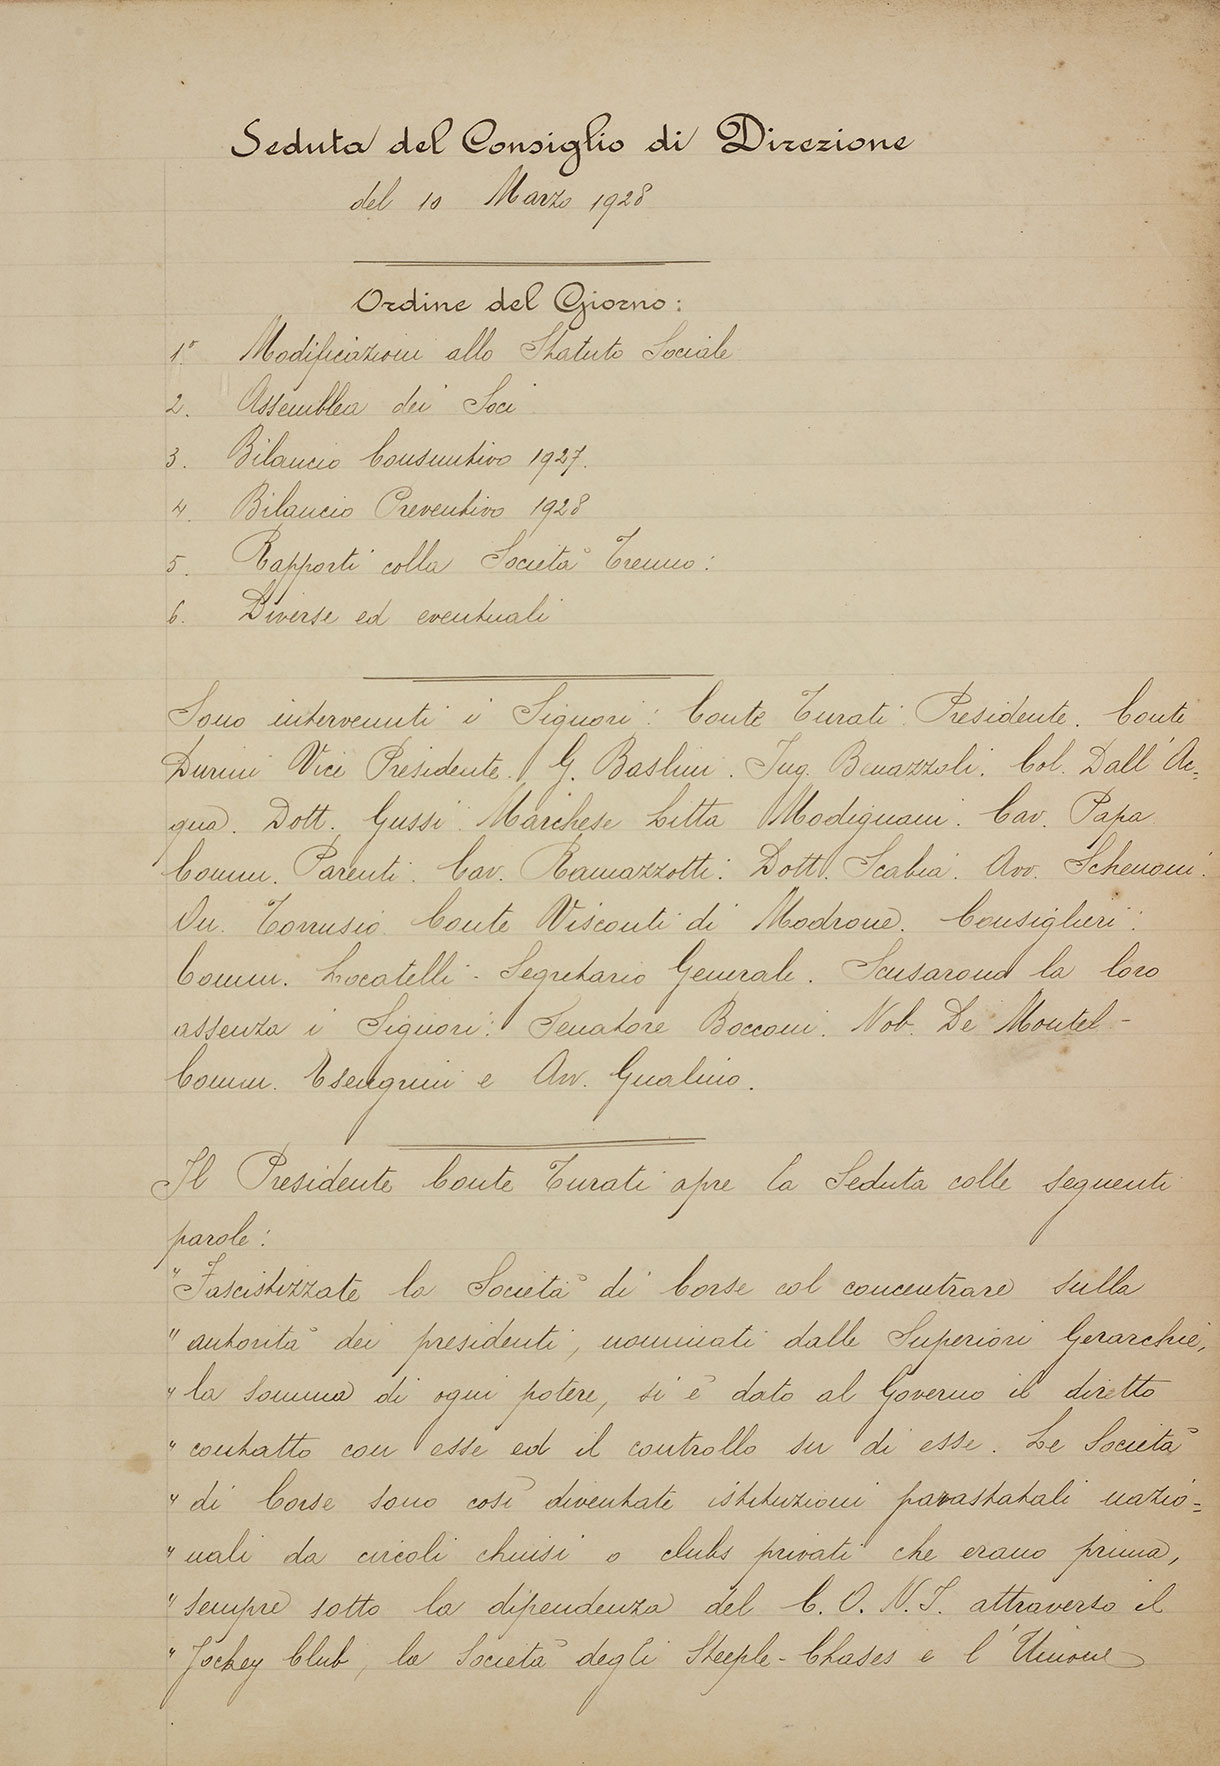 Seduta del Consiglio di Direzione
del 10 Marzo 1928
Ordine del Giorno:
1° Modificazioni allo Statuto Sociale
2. Assemblea dei Soci
3. Bilancio Consuntivo 1927.
4. Bilancio Preventivo 1928
5. Rapporti colla Società Trenno:
6. Diverse ed eventuali
Sono intervenuti i Signori: Conte Turati Presidente. Conte
Durini Vice Presidente. G. Baslini. Ing. Benazzoli. Col. Dall'Ac=
qua. Dott. Gussi. Marchese Litta Modignani. Cav. Papa
Comm. Parenti. Cav. Ramazzotti. Dott. Scabia. Avv. Schenoni.
On. Torrusio. Conte Visconti di Modrone. Consiglieri:
Comm. Locatelli - Segretario Generale. Scusarono la loro
assenza i Signori: Senatore Bocconi. Nob. De Montel -
Comm. Esengrini e Avv. Gualino.
Il Presidente Conte Turati apre la Seduta colle seguenti
parole:
"Fascistizzate le Società di Corse col concentrare sulla
"autorità dei presidenti, nominati dalle Superiori Gerarchie,
"la somma di ogni potere, si è dato al Governo il diretto
"contatto con esse ed il controllo su di esse. Le Società
"di Corse sono così diventate istituzioni parastatali nazio=
"nali da circoli chiusi o clubs privati che erano prima,
"sempre sotto la dipendenza del C.O.N.I. attraverso il
"Jockey Club, la Società degli Steeple-Chases e l'Unione